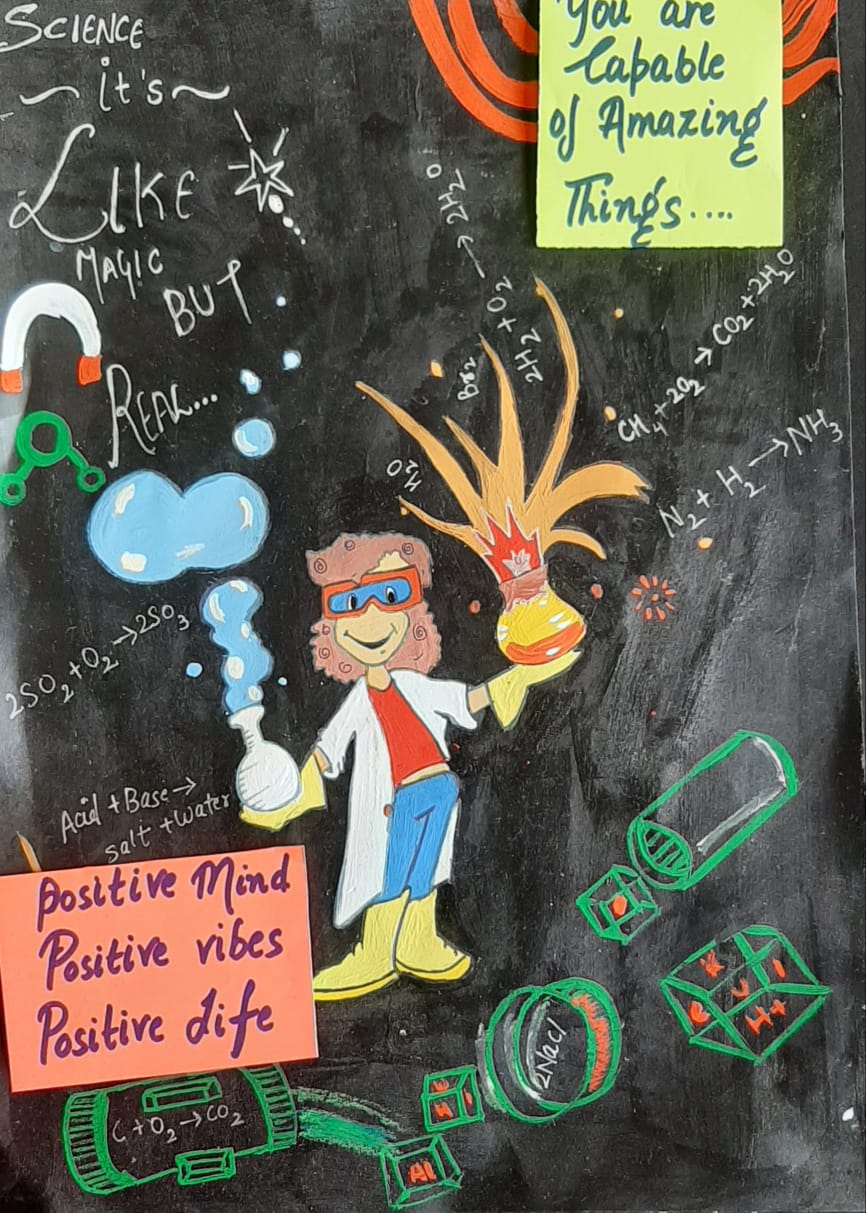 SCIENCE
it's
LIKE
MAGIC
BUT
REAL...
You are
Capable
of Amazing
Things....
2H2 + O2 → 2H2O
Br2
H2O
CH4+2O2→CO2+2H2O
N2+H2→NH3
2SO2+O2→2SO3
Acid+Base→
salt+Water
Positive Mind
Positive vibes
Positive Life
2NaCl
C+O2→CO2
Al